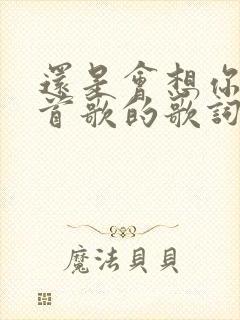 還是會想你
首歌的歌詞
魔法貝貝